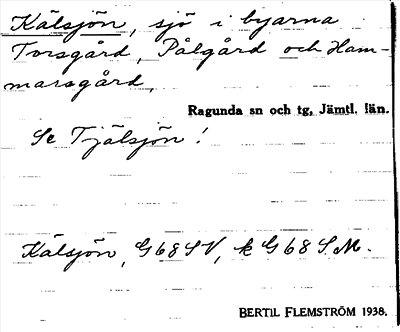 Kälsjön, sjö i byarna
Torsgård, Pålgård och Ham-
marsgård,
Ragunda sn och tg, Jämtl. län.
Se Tjälsjön!
Kälsjön, G68SV, k G68S.M.
BERTIL FLEMSTRÖM 1938.